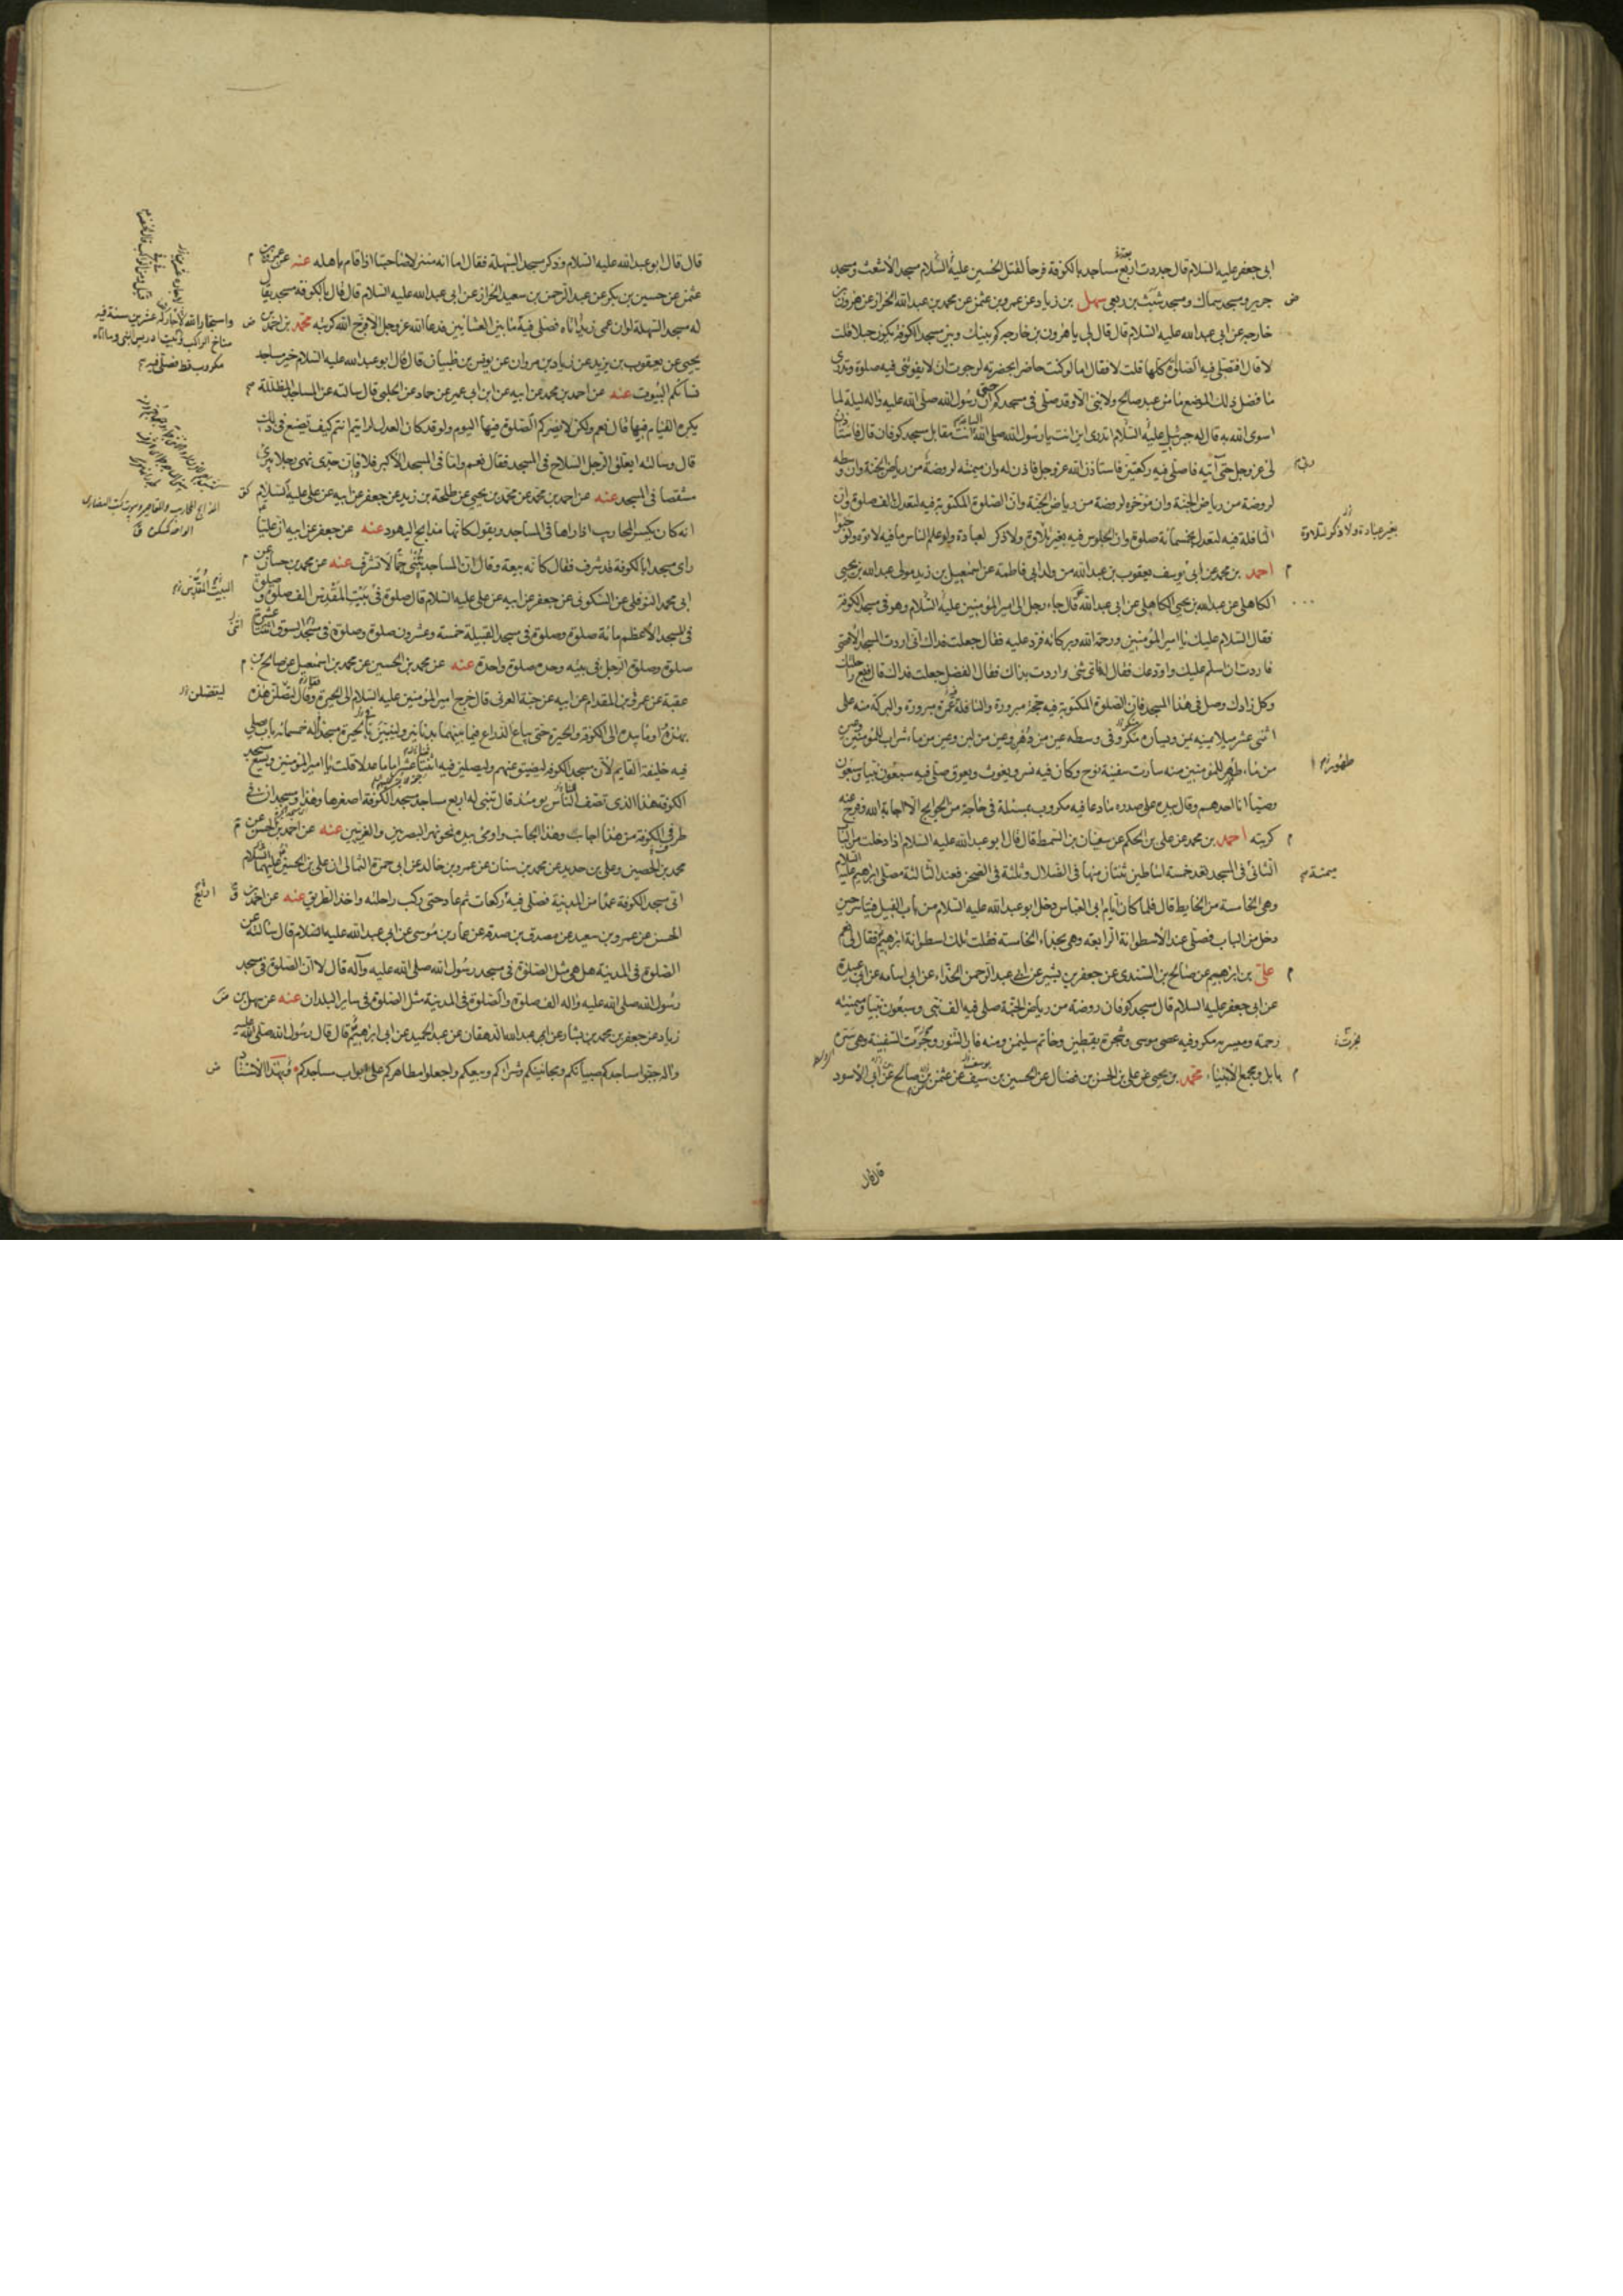 ابى جعفر عليه السلام قال جددت اربع مساجد بالكوفة فرحا لقتل الحسين عليه السلام مسجد الاشعث ومسجد
جرير ومسجد سماك ومسجد شبث بن ربعى سهل بن زياد عن عمرو بن عثمن عن محمد بن عبدالله الخزاز عن هرون بن
خارجه عن ابى عبد الله عليه السلام قال قال لى يا هرون بن خارجه كم بينك وبين مسجد الكوفة يكون ميلا قلت
لا قال افتصلى فيه الصلوة كلها قلت لا فقال اما لو كنت حاضرا بحضرته لرجوت ان لا يفوتنى فيه صلوة وتدرى
ما فضل ذلك الموضع ما من عبد صالح ولا نبى الا وقد صلى فى مسجد كوفان حتى ان رسول الله صلى الله عليه واله ليلة لما
اسرى الله به قال له جبرئيل عليه السلام اتدرى اين انت يا رسول الله صلى الله الساعة انت مقابل مسجد كوفان قال فاستاذن
لى عز وجل حتى آتيه فاصلى فيه ركعتين فاستاذن الله عز وجل فاذن له وان ميمنته لروضة من رياض الجنة وان وسطه
لروضة من رياض الجنة وان مؤخره لروضة من رياض الجنة وان الصلوة المكتوبة فيه لتعدل الف صلوة وان
النافلة فيه لتعدل بخمسمائة صلوة وان الجلوس فيه بغير تلاوة ولا ذكر لعبادة ولو علم الناس ما فيه لاتوه ولو حبوا
احمد بن محمد عن ابى يوسف يعقوب بن عبد الله من ولد ابى فاطمة عن اسمعيل بن زيد مولى عبد الله بن يحيى
الكاهلى عن عبد الله بن يحيى الكاهلى عن ابى عبد الله قال جاء رجل الى امير المؤمنين عليه السلام وهو فى مسجد الكوفة
فقال السلام عليك يا امير المؤمنين ورحمة الله وبركاته فرد عليه فقال جعلت فداك انى اردت المسجد الاقصى
فاردت ان اسلم عليك واودعك فقال لى فاى شئ اردت بذاك فقال الفضل جعلت فداك قال فبع راحلتك
وكل زادك وصل فى هذا المسجد فان الصلوة المكتوبة فيه حجة مبرورة والنافلة عمرة مبرورة والبركة منه على
اثنى عشر ميلا يمينه يمن ويساره مكر وفى وسطه عين من دهن وعين من لبن وعين من ماء شراب للمؤمنين وعين
من ماء طهر للمؤمنين منه سارت سفينة نوح وكان فيه نسر ويغوث ويعوق صلى فيه سبعون نبيا وسبعون
وصيا انا احدهم وقال بيده على صدره ما دعا فيه مكروب بمسئلة فى حاجة من الحوايج الا اجابه الله وفرج عنه
كربته احمد بن محمد عن على بن الحكم عن سفيان بن السمط قال قال ابو عبد الله عليه السلام اذا دخلت من الباب
الثانى فى المسجد فعد خمسة اساطين ثنتان منها فى الظلال وثلثة فى الصحن فعند الثالثة مصلى ابرهيم عليه السلام
وهى الخامسة من الحايط قال فلما كان ايام ابى العباس دخل ابو عبد الله عليه السلام من باب الفيل فتياسر حين
دخل من الباب فصلى عند الاسطوانة الرابعة وهى بحذاء الخامسة فقلت تلك اسطوانة ابرهيم فقال لى نعم
على بن ابرهيم عن صالح بن السندى عن جعفر بن بشير عن ابى عبد الرحمن الحذاء عن ابى اسامه عن ابى عبيدة
عن ابى جعفر عليه السلام قال مسجد كوفان روضة من رياض الجنة صلى فيه الف نبى وسبعون نبيا وميمنته
رحمة وميسرته مكر وفيه عصى موسى وشجرة يقطين وخاتم سليمن ومنه فار التنور وجرت السفينة وهى سرة
بابل ومجمع الانبياء محمد بن يحيى عن على بن الحسن بن فضال عن الحسين بن سيف عن عثمن عن صالح بن ابى الاسود
بغير عبادة ولا ذكر لتلاوة
طهور
ميمنة
قال قال
قال قال ابو عبد الله عليه السلام وذكر مسجد السهلة فقال اما انه منزل صاحبنا اذا قام باهله عنه عن عمرو بن
عثمن عن حسين بن بكر عن عبد الرحمن بن سعيد الخزاز عن ابى عبد الله عليه السلام قال قال بالكوفه مسجد يقال
له مسجد السهلة لو ان عمى زيدا اتاه فصلى فيه ما بين العشائين فدعا الله عز وجل الا فرج الله كربته محمد بن
يحيى عن يعقوب بن يزيد عن زياد بن مروان عن يونس بن ظبيان قال قال ابو عبد الله عليه السلام خير مساجد
نسائكم البيوت عنه عن احمد بن محمد عن ابيه عن ابن ابى عمير عن حماد عن الحلبى قال سالته عن المساجد المظللة
يكره القيام فيها قال نعم ولكن لا يضركم الصلوة فيها اليوم ولو قد كان العدل لرايتم انتم كيف يصنع فى ذلك
قال وسالته ايعلق الرجل السلاح فى المسجد فقال نعم واما فى المسجد الاكبر فلا فان جدى نهى رجلا يبرى
مشقصا فى المسجد عنه عن احمد بن محمد عن محمد بن يحيى عن طلحة بن زيد عن جعفر عن ابيه عن على عليه السلام
انه كان يكسر المحاريب اذا راها فى المساجد ويقول كانها مذابح اليهود عنه عن جعفر عن ابيه ان عليا
راى مسجدا بالكوفة قد شرف فقال كانه بيعة وقال ان المساجد تبنى جما لا تشرف عنه عن محمد بن حسان عن
ابى محمد النوفلى عن السكونى عن جعفر عن ابيه عن على عليه السلام قال صلوة فى بيت المقدس الف صلوة وصلوة
فى المسجد الاعظم مائة صلوة وصلوة فى مسجد القبيلة خمسة وعشرون صلوة وصلوة فى مسجد السوق اثنتا عشرة
صلوة وصلوة الرجل فى بيته وحده صلوة واحدة عنه عن محمد بن الحسين عن محمد بن اسمعيل عن صالح بن
عقبة عن عمرو بن المقدام عن ابيه عن حبة العرنى قال خرج امير المؤمنين عليه السلام الى الحيرة وقال لتصلن هذه
بهذه واوما بيده الى الكوفة والحيرة حتى يباع الذراع فيما بينهما بدنانير وليبنين بالحيرة مسجد له خمسمائة باب يصلى
فيه خليفة القايم لان مسجد الكوفه ليضيق عنهم وليصلين فيه اثنتا عشر اماما عدلا قلت يا امير المؤمنين ويسع مسجد
الكوفة هذا الذى تصف الناس يومئذ قال تبنى له اربع مساجد مسجد الكوفة اصغرها وهذا ومسجدان فى
طرفى الكوفة من هذا الجانب وهذا الجانب واومى بيده نحو نهر البصريين والغريين عنه عن احمد بن الحسن عن
محمد بن الحصين وعلى بن حديد عن محمد بن سنان عن عمرو بن خالد عن ابى حمزة الثمالى ان على بن الحسين عليهما السلام
اتى مسجد الكوفة عمدا من المدينة فصلى فيه ركعات ثم عاد حتى ركب راحلته واخذ الطريق عنه عن احمد بن
الحسن عن عمرو بن سعيد عن مصدق بن صدقه عن عمار بن موسى عن ابى عبد الله عليه السلام قال سالته عن
الصلوة فى المدينة هل هى مثل الصلوة فى مسجد رسول الله صلى الله عليه وآله قال لا ان الصلوة فى مسجد
رسول الله صلى الله عليه واله الف صلوة والصلوة فى المدينة مثل الصلوة فى ساير البلدان عنه عن سهل بن
زياد عن جعفر بن محمد بن بشار عن عبد الله الدهقان عن عبد الحميد عن ابى ابرهيم قال قال رسول الله صلى الله عليه
واله جنبوا مساجدكم صبيانكم ومجانينكم وشراءكم وبيعكم واجعلوا مطاهركم على ابواب مساجدكم وبهذا الاسناد
مكروب قط فصلى فيه
البيت المقدس
اربع